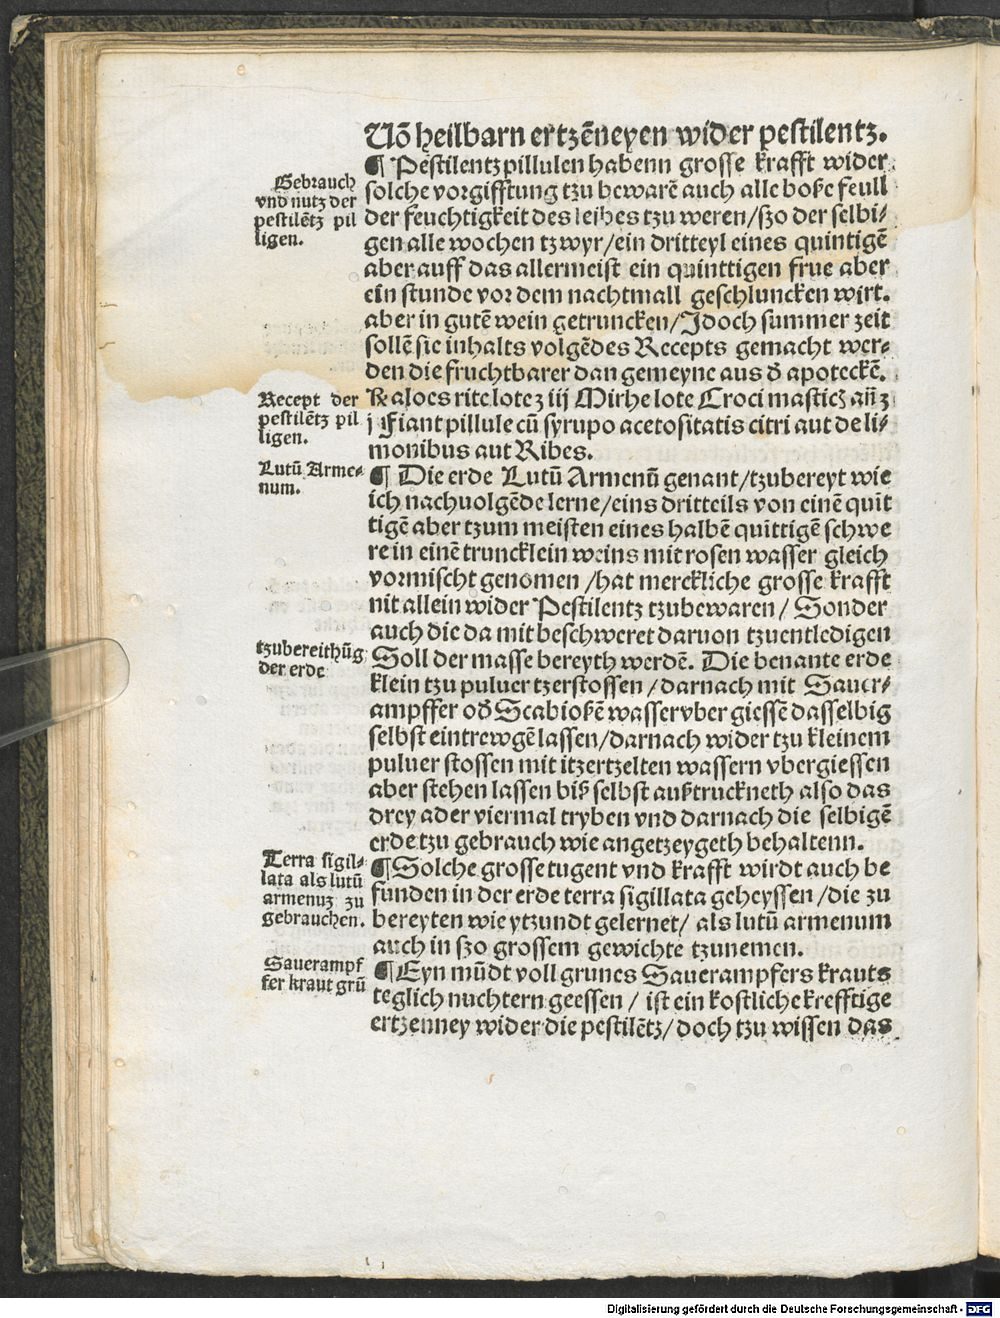 Uō heilbarn ertzēneyen wider pestilentz.
¶ Pestilentz pillulen habenn grosse krafft wider
solche vorgifftung tzu bewarē auch alle boße feull
der feuchtigkeit des leibes tzu weren/szo der selbi/
gen alle wochen tzwyr/ein dritteyl eines quintigē
aber auff das allermeist ein quinttigen frue aber
ein stunde vor dem nachtmall geschluncken wirt.
aber in gutē wein getruncken/Jdoch summer zeit
sollē sie inhalts volgēdes Recepts gemacht wer⸗
den die fruchtbarer dan gemeyne aus d̄ apoteckē.
℞ aloes rite lote ʒ iij Mirhe lote Croci masticꝫ añ ʒ
j Fiant pillule cū syrupo acetositatis citri aut de li/
monibus aut Ribes.
¶ Die erde Lutū Armenū genant/tzubereyt wie
ich nachuolgēde lerne/eins dritteils von einē quit
tigē aber tzum meisten eines halbē quittigē schwe
re in einē truncklein weins mit rosen wasser gleich
vormischt genomen /hat merckliche grosse krafft
nit allein wider Pestilentz tzubewaren/ Sonder
auch die da mit beschweret daruon tzuentledigen
Soll der masse bereyth werdē. Die benante erde
klein tzu puluer tzerstossen /darnach mit Sauer⸗
ampffer od̄ Scabioßē wasser vber giessē dasselbig
selbst eintrewgē lassen/darnach wider tzu kleinem
puluer stossen mit itzertzelten wassern vbergiessen
aber stehen lassen biß selbst außtruckneth also das
drey ader viermal tryben vnd darnach die selbigē
erde tzu gebrauch wie angetzeygeth behaltenn.
¶ Solche grosse tugent vnd krafft wirdt auch be
funden in der erde terra sigillata geheyssen /die zu
bereyten wie ytzundt gelernet/ als lutū armenum
auch in szo grossem gewichte tzunemen.
¶ Eyn mūdt voll grunes Sauerampfers krauts
teglich nuchtern geessen / ist ein kostliche krefftige
ertzenney wider die pestilētz/doch tzu wissen das
Gebrauch
vnd nutz der
pestilētz pil
ligen.
Recept der
pestilētz pil
ligen.
Lutū Arme⸗
num.
tzubereithūg
der erde
Terra sigil⸗
lata als lutū
armenuꝫ zu
gebrauchen.
Sauerampf
fer kraut grū
Digitalisierung gefördert durch die Deutsche Forschungsgemeinschaft - DFG